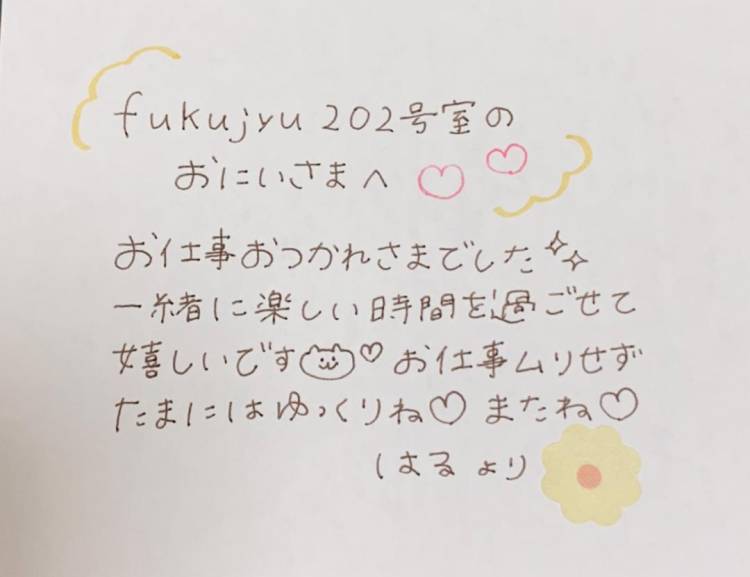 fukujyu 202号室の
おにいさまへ ♡ ♡
お仕事おつかれさまでした✨
一緒に楽しい時間を過ごせて
嬉しいです♡ お仕事ムリせず
たまにはゆっくりね♡ またね♡
はるより